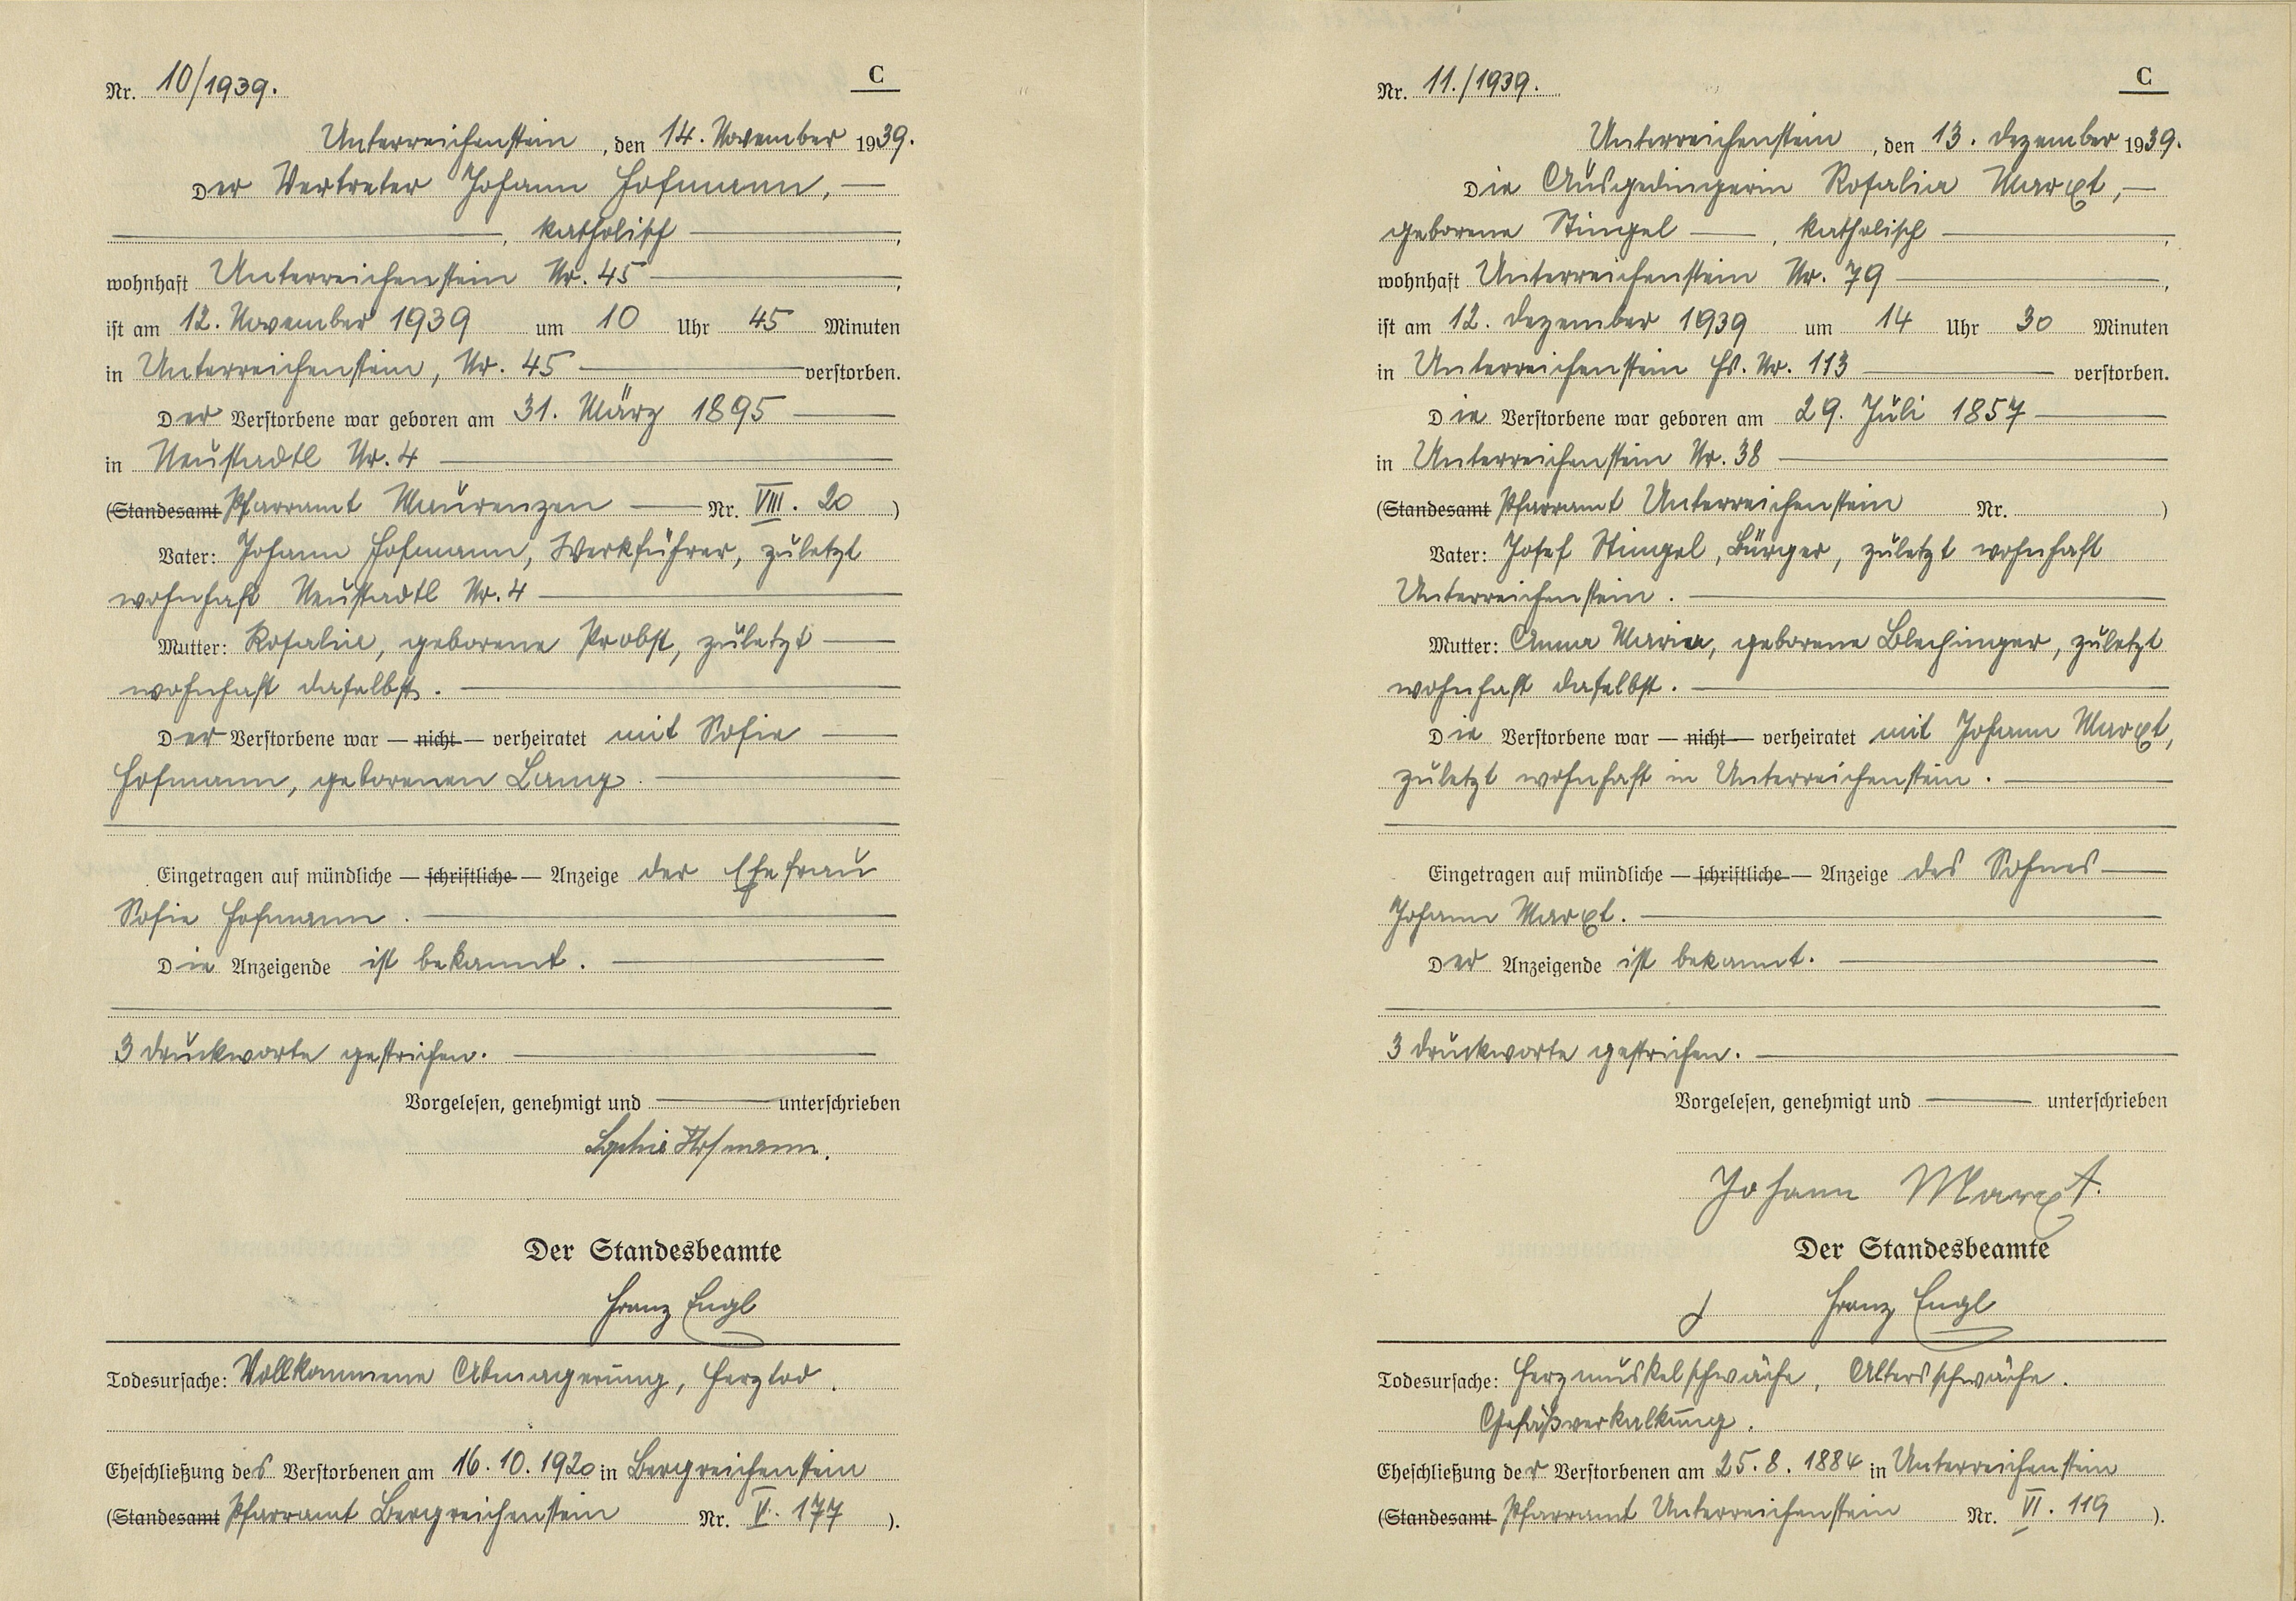 Nr. 10/1939.
C
Unterreichenstein, den 14. November 1939.
Der Vertreter Johann Hofmann,
, katholisch,
wohnhaft Unterreichenstein Nr. 45,
ist am 12. November 1939 um 10 Uhr 45 Minuten
in Unterreichenstein, Nr. 45 verstorben.
Der Verstorbene war geboren am 31. März 1895
in Neustadtl Nr. 4
(Standesamt Pfarramt Maurenzen Nr. VIII. 20)
Vater: Johann Hofmann, Werkführer, zuletzt
wohnhaft Neustadtl Nr. 4
Mutter: Rosalie, geborene Probst, zuletzt
wohnhaft daselbst.
Der Verstorbene war — nicht — verheiratet mit Sofie
Hofmann, geborenen Lang.
Eingetragen auf mündliche — schriftliche — Anzeige der Ehefrau
Sofie Hofmann.
Die Anzeigende ist bekannt.
3 Druckworte gestrichen.
Vorgelesen, genehmigt und unterschrieben
Sophie Hofmann.
Der Standesbeamte
Franz Engl
Todesursache: Vollkommene Abmagerung, Herztod.
Eheschließung des Verstorbenen am 16.10.1920 in Bergreichenstein
(Standesamt Pfarramt Bergreichenstein Nr. V. 177).
Nr. 11./1939.
C
Unterreichenstein, den 13. Dezember 1939.
Die Ausgedingerin Rosalia Marxt,
geborene Stingel, katholisch,
wohnhaft Unterreichenstein Nr. 79,
ist am 12. Dezember 1939 um 14 Uhr 30 Minuten
in Unterreichenstein Hs. Nr. 113 verstorben.
Die Verstorbene war geboren am 29. Juli 1857
in Unterreichenstein Nr. 38
(Standesamt Pfarramt Unterreichenstein Nr. )
Vater: Josef Stingel, Bürger, zuletzt wohnhaft
Unterreichenstein.
Mutter: Anna Maria, geborene Blechinger, zuletzt
wohnhaft daselbst.
Die Verstorbene war — nicht — verheiratet mit Johann Marxt,
zuletzt wohnhaft in Unterreichenstein.
Eingetragen auf mündliche — schriftliche — Anzeige des Sohnes
Johann Marxt.
Der Anzeigende ist bekannt.
3 Druckworte gestrichen.
Vorgelesen, genehmigt und unterschrieben
Johann Marxt.
Der Standesbeamte
Franz Engl
Todesursache: Herzmuskelschwäche, Altersschwäche.
Gefäßverkalkung.
Eheschließung der Verstorbenen am 25.8.1884 in Unterreichenstein
(Standesamt Pfarramt Unterreichenstein Nr. VI. 119).